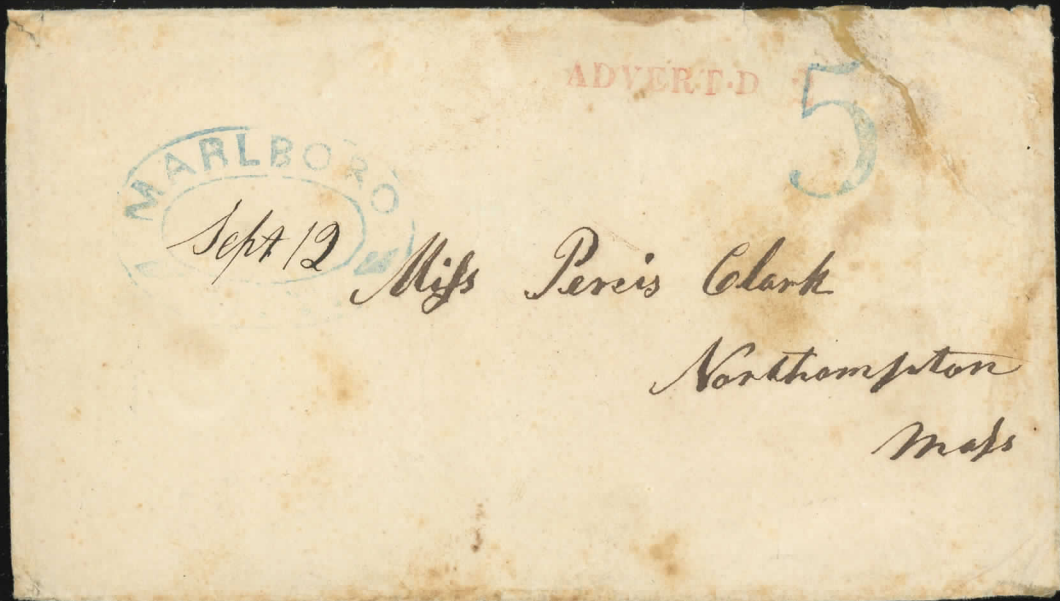 ADVERT.D
5
MARLBORO
Sept 12
Miss Percis Clark
Northampton
Mass